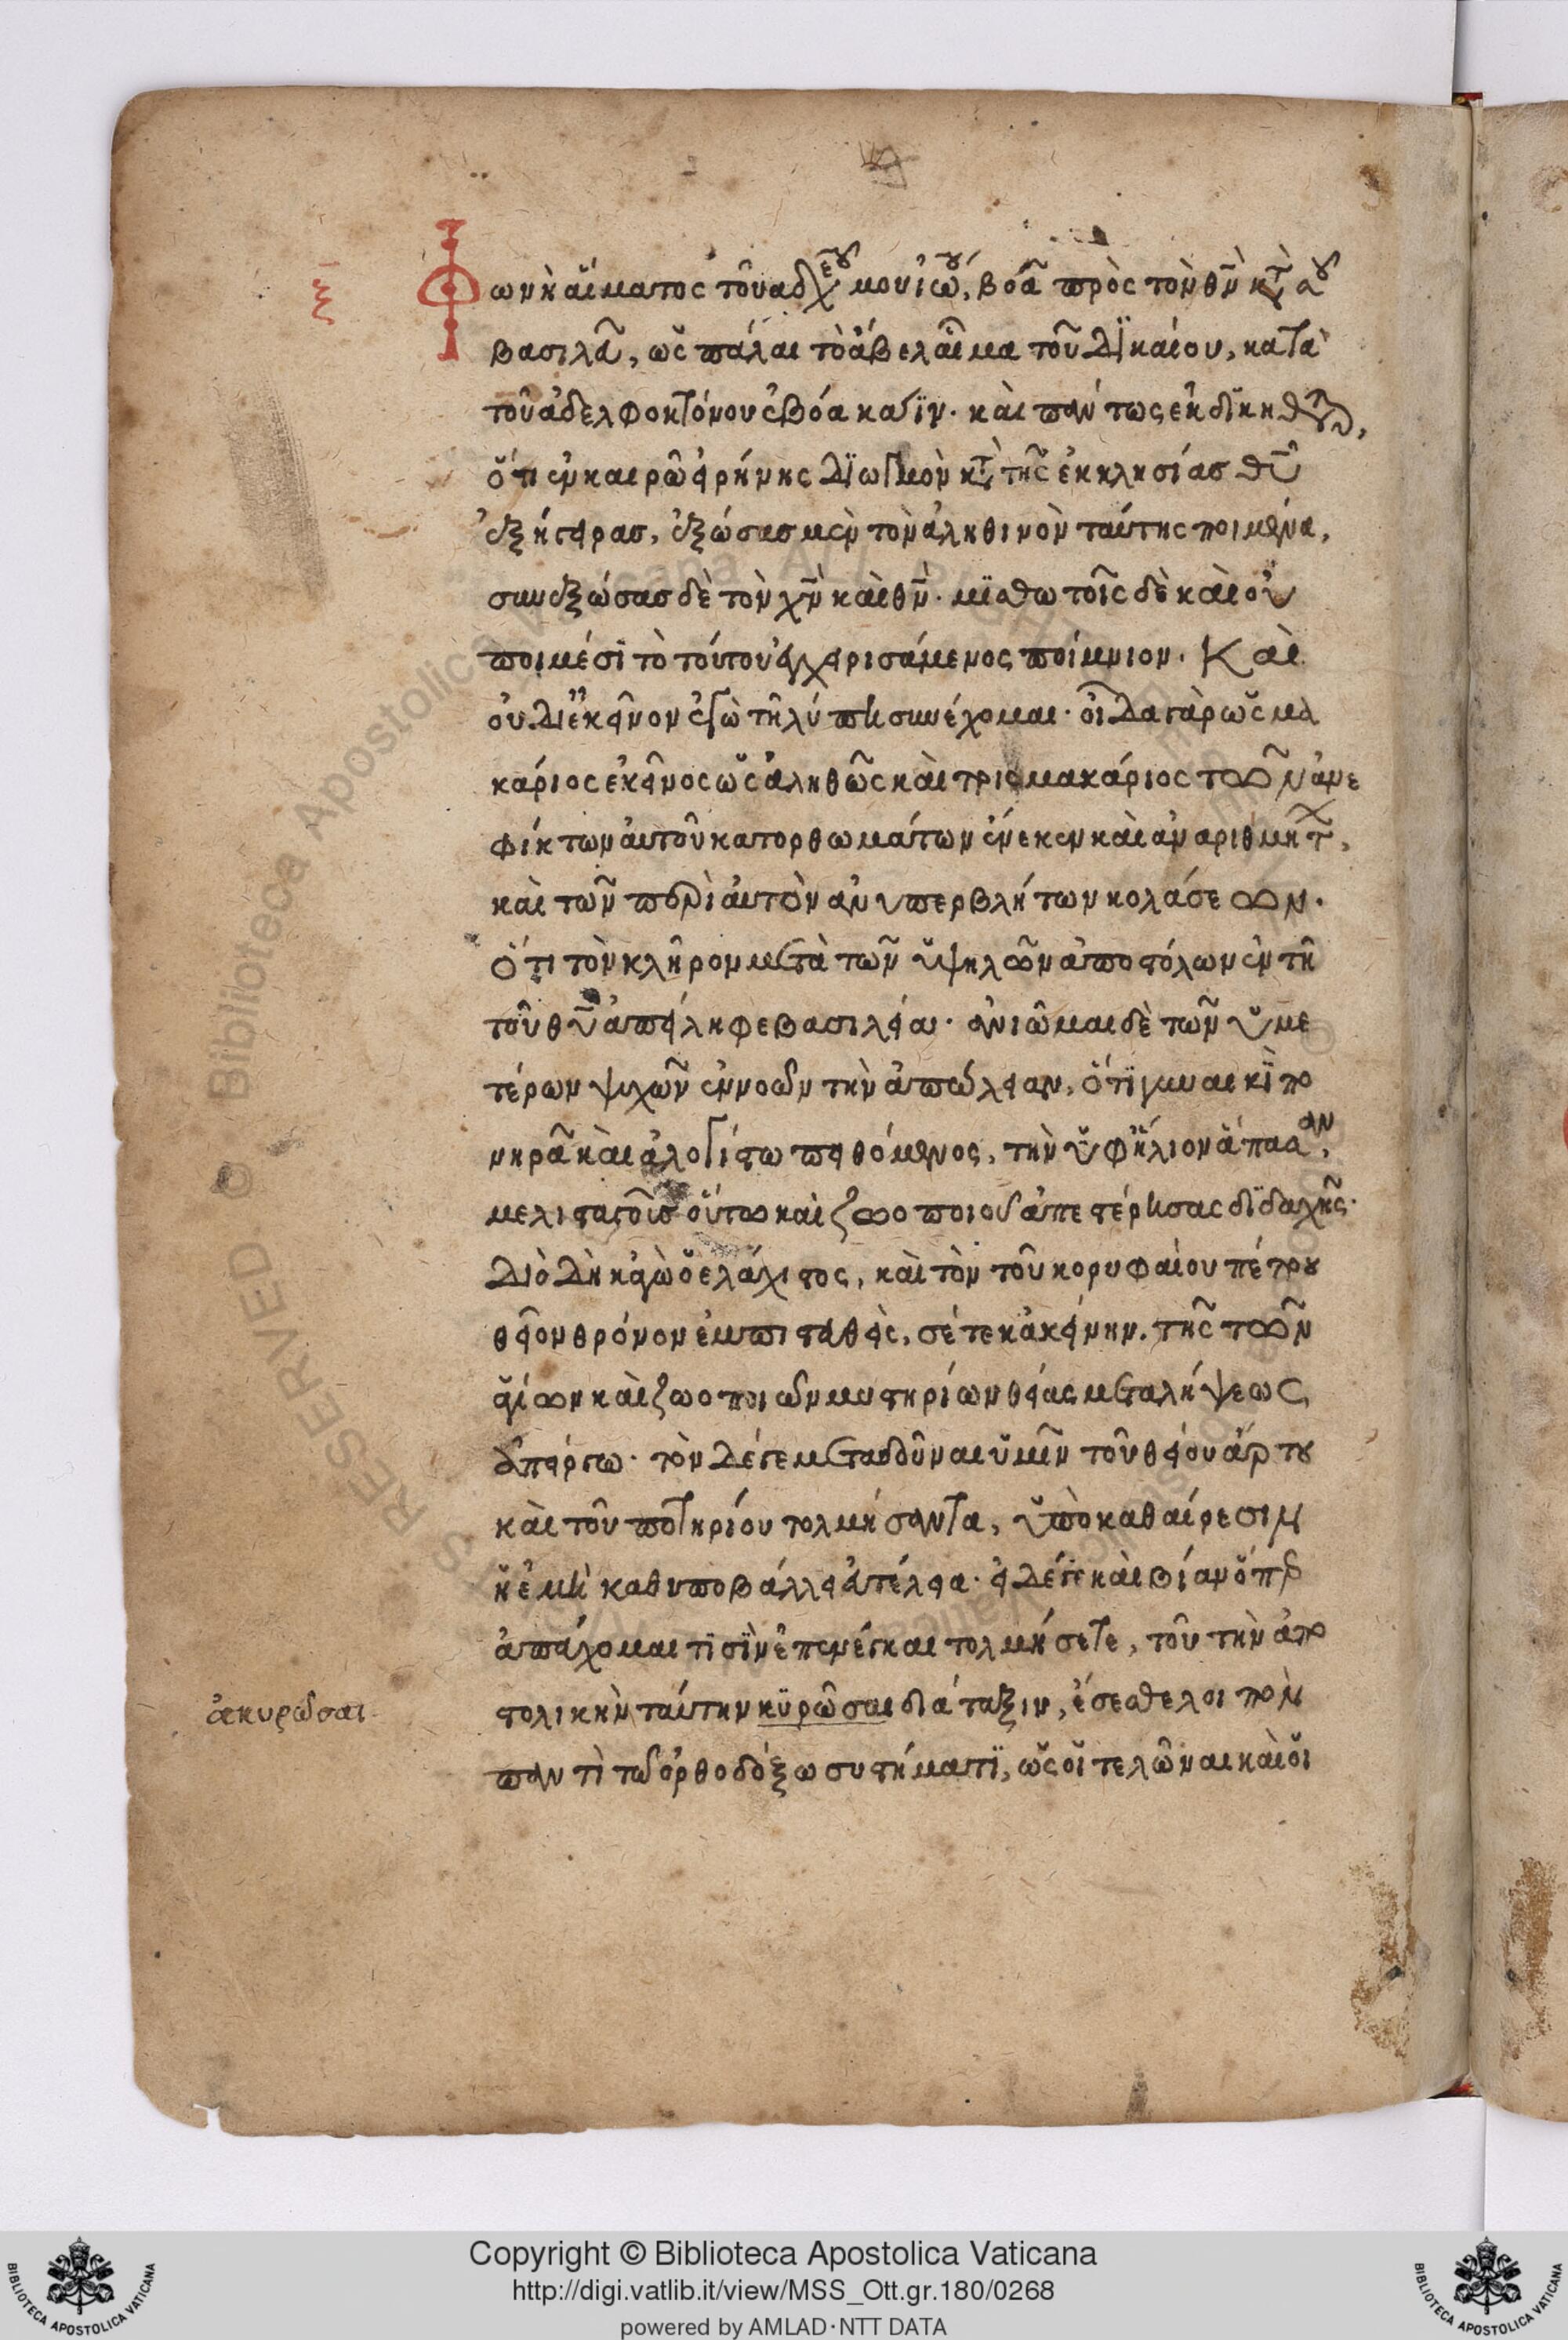 ξ
Φωνὴ αἵματος τοῦ ἀδχ͞ου μου ἰω͞ου, βοᾶ πρὸς τὸν θν̅ κτ̀ σοῦ
βασιλεῦ, ὡς πάλαι τὸ ἄβελ αἷμα τοῦ δικαίου, κατὰ
τοῦ ἀδελφοκτόνου ἐβόα καΐν. καὶ πάντως ἐκδικηθήσεται,
ὅτι ἐν καιρῶ εἰρήνης διωγμὸν κτ̀ τῆς ἐκκλησίας θυ̅
ἐξήγειρας, ἐξώσας μὲν τὸν ἀληθινὸν ταύτης ποιμένα,
συνεξώσας δὲ τὸν χν̅ καὶ θν̅. μισθωτοῖς δὲ καὶ οὐ
ποιμέσι τὸ τούτου ἐγχειρισάμενος ποίμνιον. Καὶ
οὐ δι' ἐκεῖνον ἐγὼ τῆ λύπη συνέχομαι. οἶδα γὰρ ὡς μα
κάριος ἐκεῖνος ὡς ἀληθῶς καὶ τρισμακάριος τῶν ἀνε
φίκτων αὐτοῦ κατορθωμάτων ἕνεκεν καὶ ἀναριθμήτ,
καὶ τῶν περὶ αὐτὸν ἀνυπερβλήτων κολάσεων.
Ὅτι τὸν κλῆρον μετὰ τῶν ὑψηλῶν ἀποστόλων ἐν τῆ
τοῦ θυ̅ ἀπείληφε βασιλεία. ἀνιῶμαι δὲ τῶν ὑμε
τέρων ψυχῶν ἐννοῶν τὴν ἀπώλειαν, ὅτι γυναικὶ πο
νηρᾶ καὶ ἀλογίστω πειθόμενος, τὴν ὑφήλιον ἅπασαν,
μελισταγοῦς οὕτω καὶ ζωοποιοῦ ἀπεστέρησας διδαχῆς.
Διὸ δὴ κἀγὼ ὁ ἐλάχιστος, καὶ τὸν τοῦ κορυφαίου πέτρου
θεῖον θρόνον ἐμπιστευθεὶς, σέ τε κἀκείνην, τῆς τῶν
ἁγίων καὶ ζωοποιῶν μυστηρίων θείας μεταλήψεως
ἀπείργω. τὸν δέ γε μεταδοῦναι ὑμῖν τοῦ θείου ἄρτου
καὶ τοῦ ποτηρίου τολμήσαντα, ὑπὸ καθαίρεσιν
ἡ ἐμὴ καθυποβάλλει εὐτέλεια. εἰ δέ γε καὶ βίαν ὅπερ
ἀπεύχομαι τισὶν ἐπενέγκαι τολμήσετε, τοῦ τὴν ἀπο
στολικὴν ταύτην κυρῶσαι διάταξιν, ἔσεσθε λοιπὸν
παντὶ τῶ ὀρθοδόξω συστήματι, ὡς οἱ τελῶναι καὶ οἱ
ἀκυρῶσαι
Copyright © Biblioteca Apostolica Vaticana
http://digi.vatlib.it/view/MSS_Ott.gr.180/0268
powered by AMLAD·NTT DATA